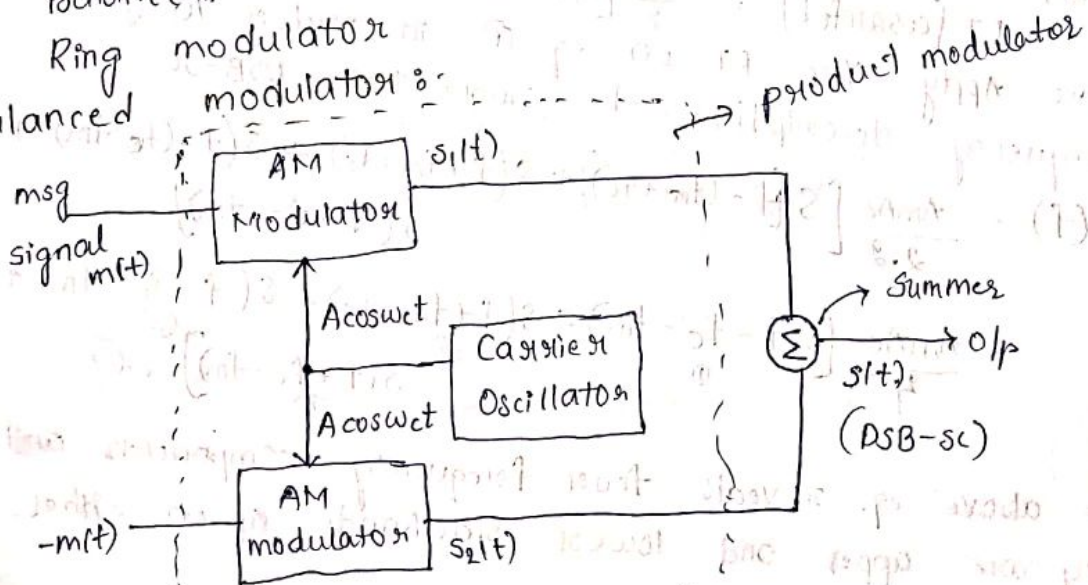 Ring modulator
modulator :-
product modulator
msg
signal
m(t)
AM
Modulator
s₁(t)
Acoswct
Carrier
Oscillator
Acoswct
Σ
Summer
O/p
s(t).
(DSB-SC)
-m(t)
AM
modulator
s₂(t)